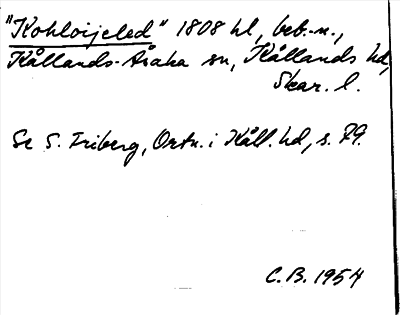 "Kohloijeled" 1808 hl, beb.-n.,
Kållands-Åsaka sn, Kållands hd,
Skar. l.
Se S. Friberg, Ortn. i Kåll. hd, s. 79.
C.B. 1954